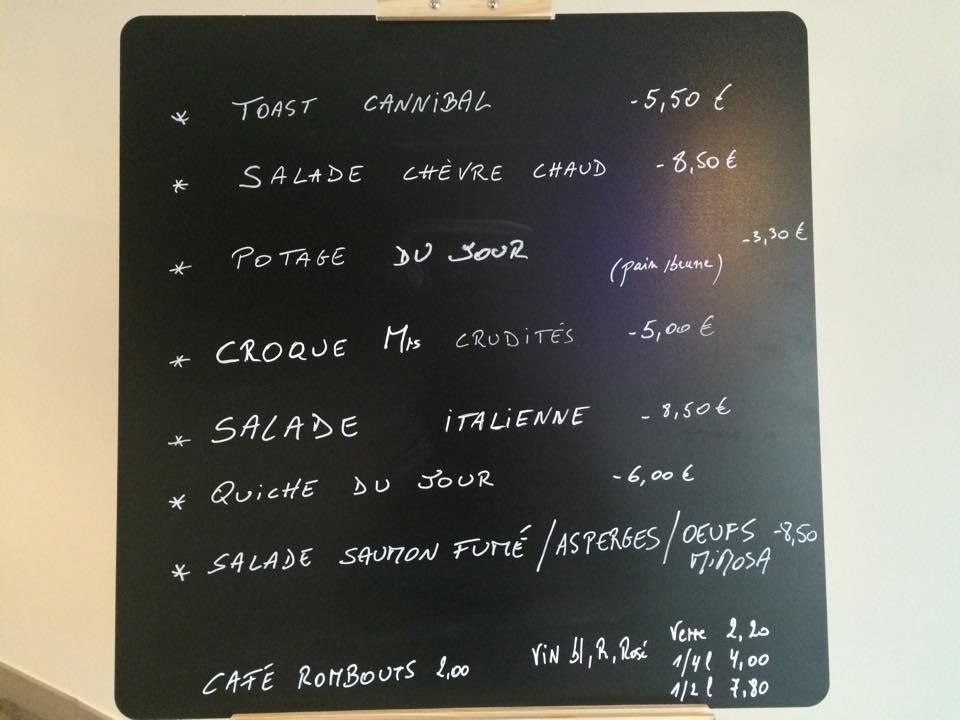 * TOAST CANNIBAL - 5,50 €
* SALADE CHÈVRE CHAUD - 8,50 €
* POTAGE DU JOUR (pain/beurre) - 3,30 €
* CROQUE Mrs CRUDITÉS - 5,00 €
* SALADE ITALIENNE - 8,50 €
* QUICHE DU JOUR - 6,00 €
* SALADE SAUMON FUMÉ / ASPERGES / OEUFS - 8,50
MIMOSA
Verre 2,20
CAFÉ ROMBOUTS 2,00 VIN bl, R, Rosé 1/4 l 4,00
1/2 l 7,80